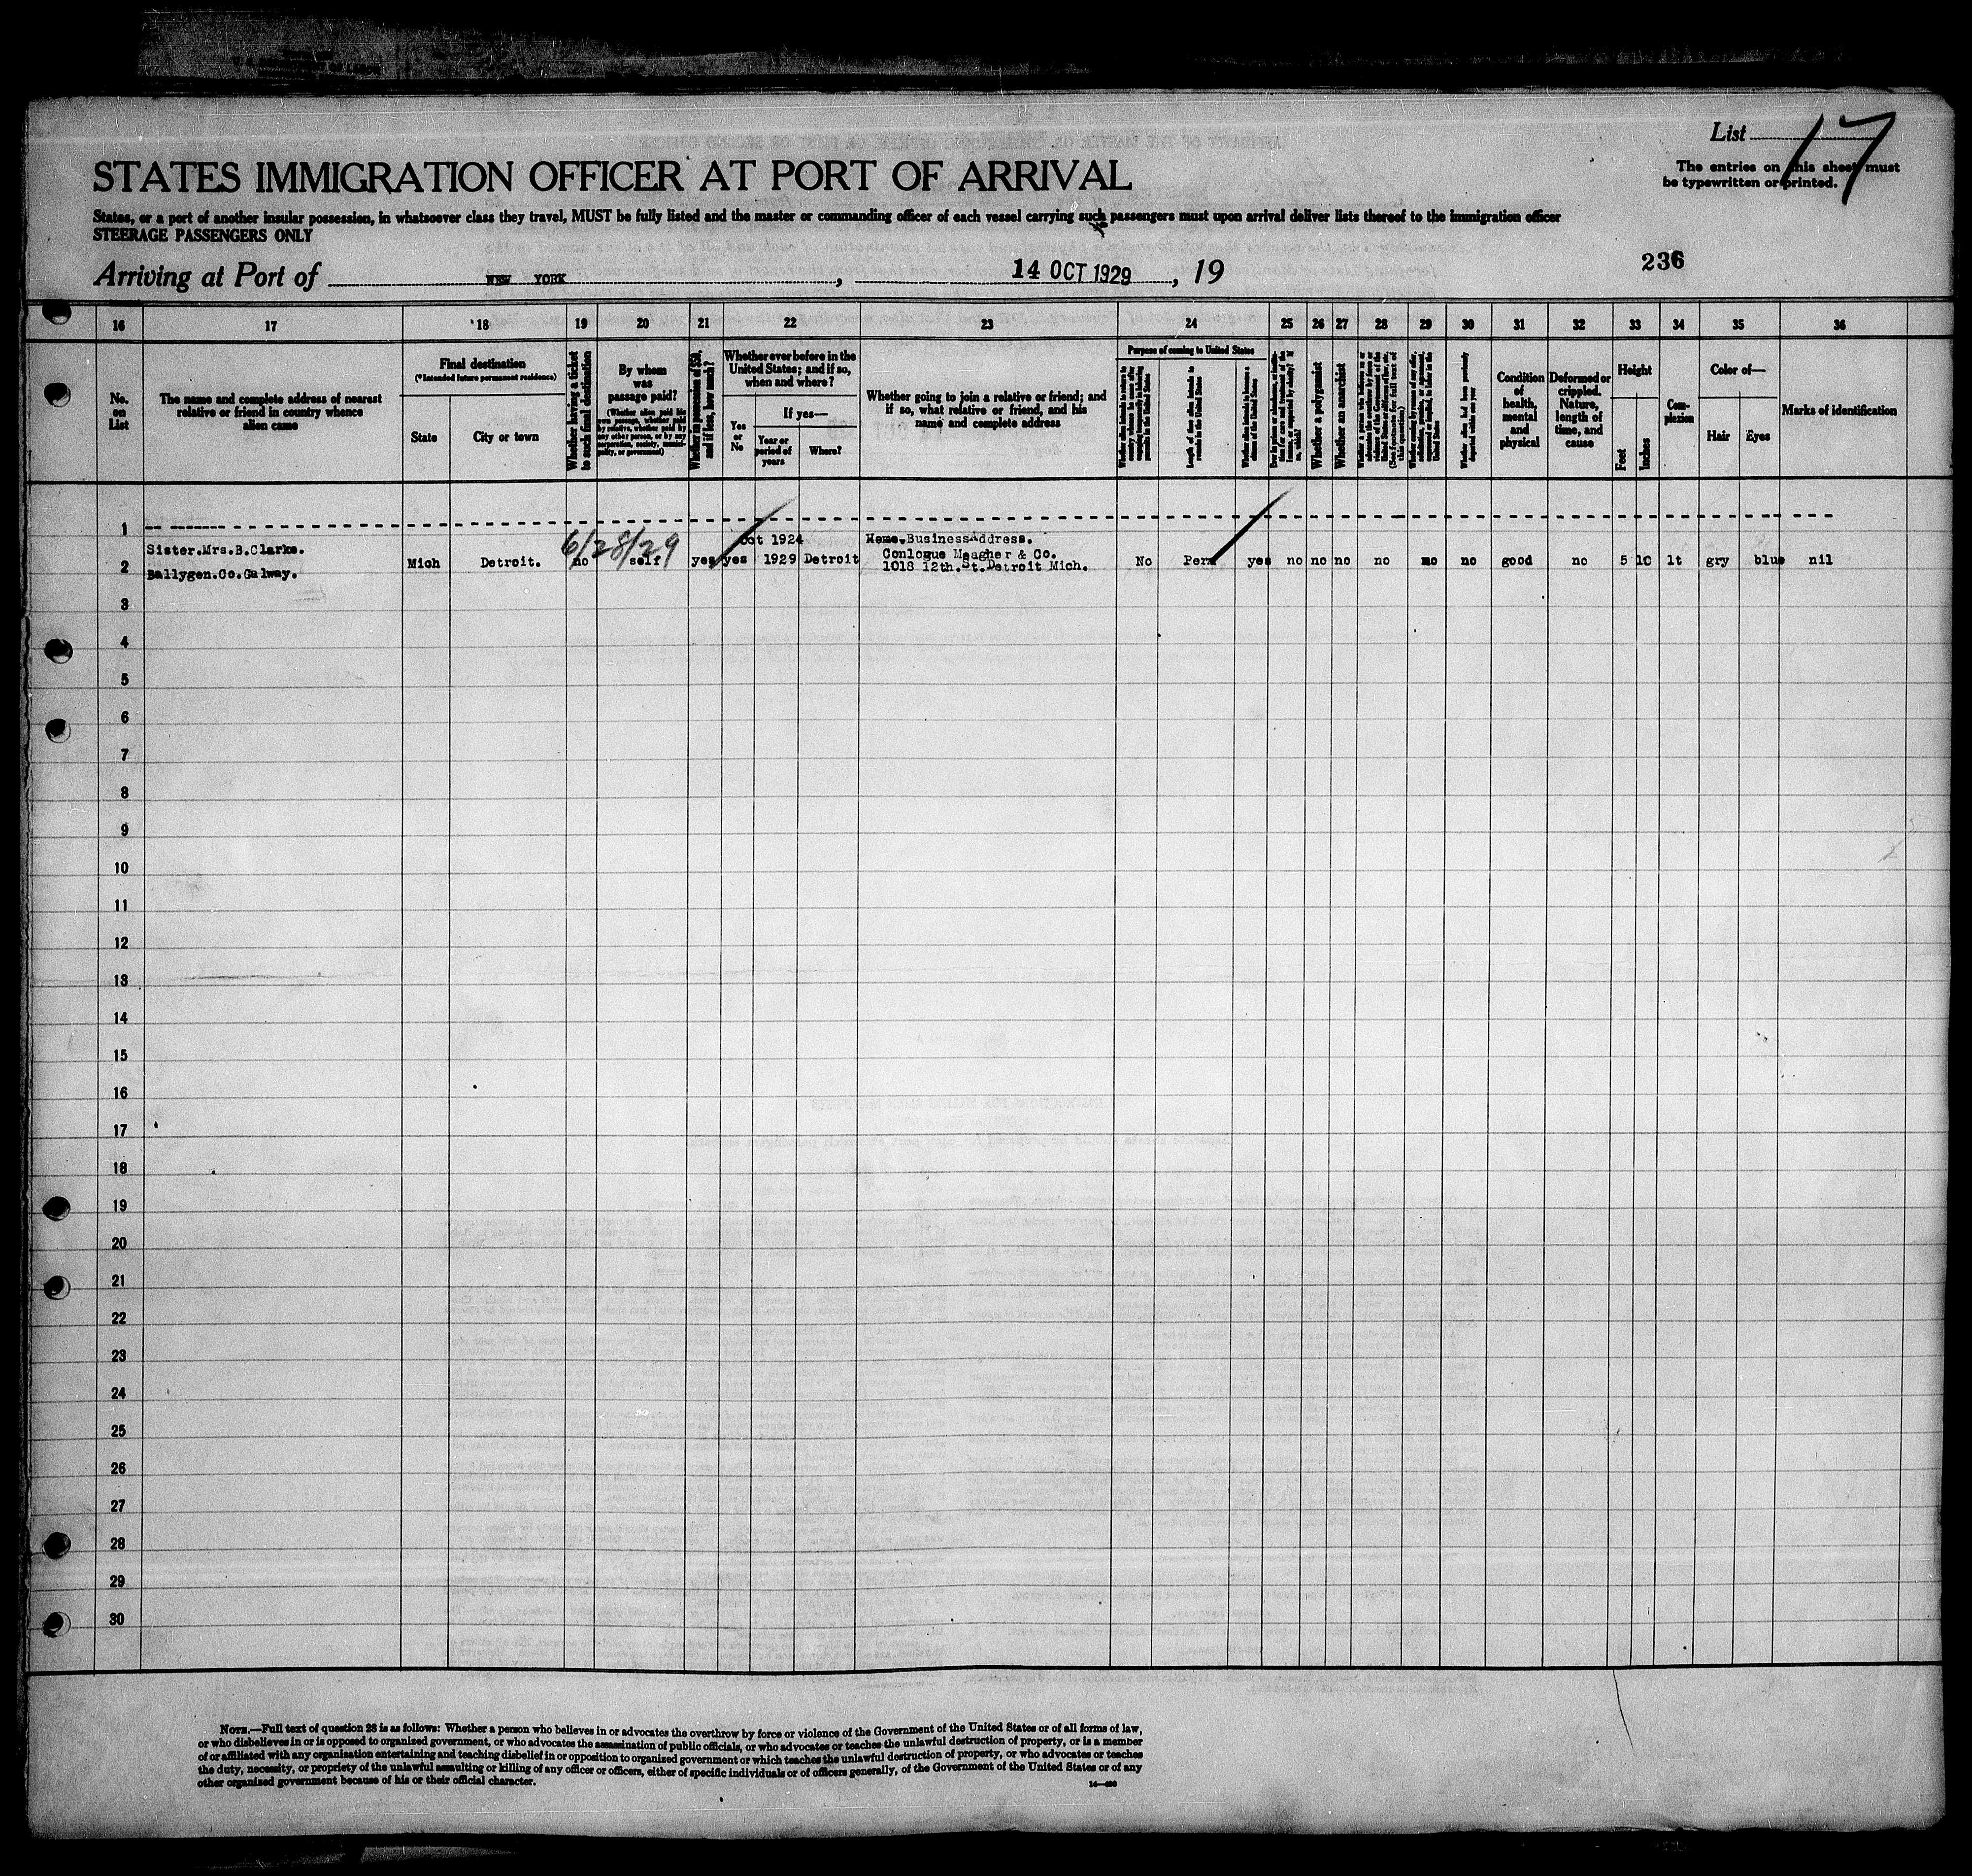 List 17
The entries on this sheet must
be typewritten or printed.
STATES IMMIGRATION OFFICER AT PORT OF ARRIVAL
States, or a port of another insular possession, in whatsoever class they travel, MUST be fully listed and the master or commanding officer of each vessel carrying such passengers must upon arrival deliver lists thereof to the immigration officer
STEERAGE PASSENGERS ONLY
Arriving at Port of NEW YORK, 14 OCT 1929, 19
236
16 17 18 19 20 21 22 23 24 25 26 27 28 29 30 31 32 33 34 35 36
No.
on
List
The name and complete address of nearest
relative or friend in country whence
alien came
Final destination
(*Intended future permanent residence)
State
City or town
Whether having a ticket
to such final destination
By whom
was
passage paid?
(Whether alien paid his
own passage, whether paid
by relative, whether paid by
any other person, or by any
corporation, society, munici-
pality, or government)
Whether in possession of $50,
and if less, how much?
Whether ever before in the
United States; and if so,
when and where?
Yes
or
No
If yes—
Year or
period of
years
Where?
Whether going to join a relative or friend; and
if so, what relative or friend, and his
name and complete address
Purpose of coming to United States
Length of time alien intends to
remain in the United States
Whether alien intends to become a
citizen of the United States
Whether a polygamist
Whether an anarchist
Whether alien had been previously
deported within one year
Condition
of
health,
mental
and
physical
Deformed or
crippled.
Nature,
length of
time, and
cause
Height
Feet
Inches
Com-
plexion
Color of—
Hair
Eyes
Marks of identification
1
6/28/29
Sister.Mrs.B.Clarke. Oct 1924 Home.Business Address.
2 Ballygen.Co.Galway. Mich Detroit. no self yes yes 1929 Detroit Conlogue Meagher & Co. No Perm yes no no no no no no good no 5 10 lt gry blue nil
1018 12th.St.Detroit Mich.
3
4
5
6
7
8
9
10
11
12
13
14
15
16
17
18
19
20
21
22
23
24
25
26
27
28
29
30
NOTE.—Full text of question 28 is as follows: Whether a person who believes in or advocates the overthrow by force or violence of the Government of the United States or of all forms of law,
or who disbelieves in or is opposed to organized government, or who advocates the assassination of public officials, or who advocates or teaches the unlawful destruction of property, or is a member
of or affiliated with any organization entertaining and teaching disbelief in or opposition to organized government or which teaches the unlawful destruction of property, or who advocates or teaches
the duty, necessity, or propriety of the unlawful assaulting or killing of any officer or officers, either of specific individuals or of officers generally, of the Government of the United States or of any
other organized government because of his or their official character.